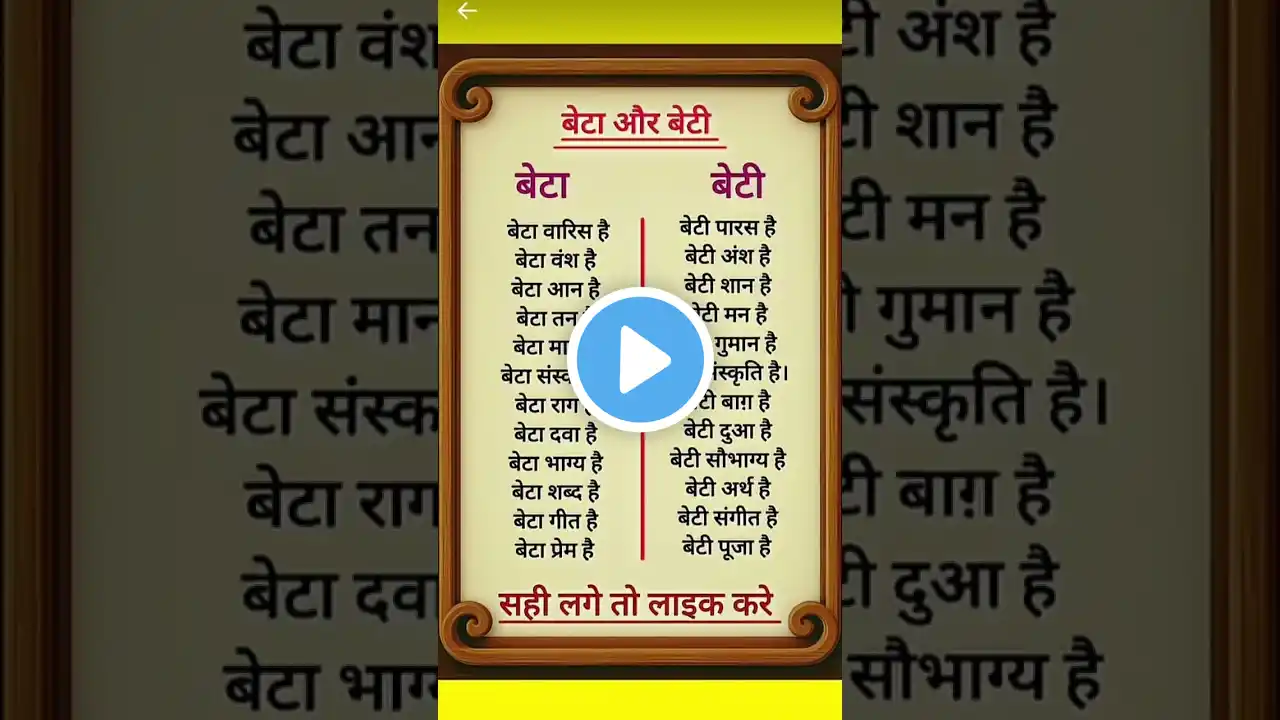 बेटा और बेटी
बेटा
बेटा वारिस है
बेटा वंश है
बेटा आन है
बेटा तन
बेटा
बेटा
बेटा राग है
बेटा दवा है
बेटा भाग्य है
बेटा शब्द है
बेटा गीत है
बेटा प्रेम है
बेटी
बेटी पारस है
बेटी अंश है
बेटी शान है
बेटी मन है
गुमान है
संस्कृति है।
बेटी बाग़ है
बेटी दुआ है
बेटी सौभाग्य है
बेटी अर्थ है
बेटी संगीत है
बेटी पूजा है
सही लगे तो लाइक करे